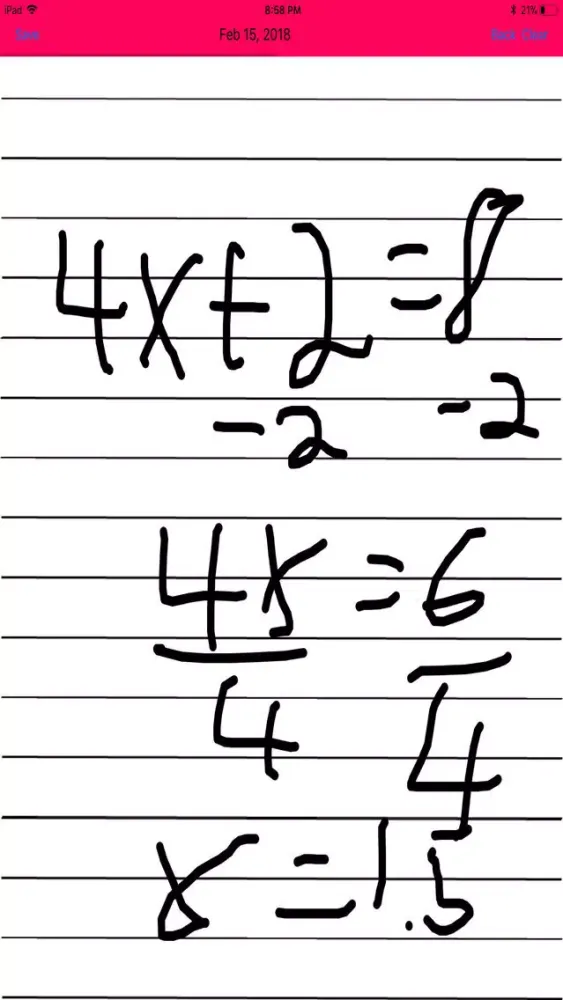 iPad 8:58 PM 21%
Save Feb 15, 2018 Back Clear
4x+2=8
-2 -2
4x=6
4 4
x=1.5